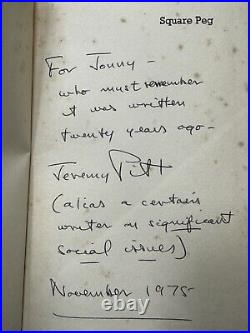 Square Peg
For Jonny –
who must remember
it was written
twenty years ago –
Jeremy Pitt
(alias a certain
writer on significant
social issues)
November 1975